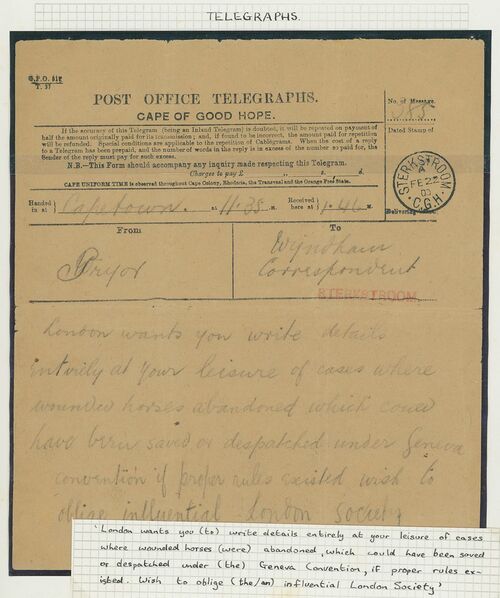 TELEGRAPHS.
G.P.O. 51F
POST OFFICE TELEGRAPHS.
CAPE OF GOOD HOPE.
If the accuracy of this Telegram (being an Inland Telegram) is doubted, it will be repeated on payment of
half the amount originally paid for its transmission; and, if found to be incorrect, the amount paid for repetition
will be refunded. Special conditions are applicable to the repetition of Cablegrams. When the cost of a reply
to a Telegram has been prepaid, and the number of words in the reply is in excess of the number so paid for, the
Sender of the reply must pay for such excess.
N.B.—This Form should accompany any inquiry made respecting this Telegram.
Charges to pay £ s. d.
CAPE UNIFORM TIME is observed throughout Cape Colony, Rhodesia, the Transvaal and the Orange Free State.
No. of Message.
Dated Stamp of
STERKSTROOM
FE 22
C.G.H.
Delivering Office.
Handed in at Capetown. at 11.38 M. Received here at 1.46 M.
From
Pryor
To
Wyndham
Correspondent
STERKSTROOM
London wants you write details
entirely at your leisure of cases where
wounded horses abandoned which could
have been saved or despatched under Geneva
convention if proper rules existed wish to
oblige influential London Society
'London wants you (to) write details entirely at your leisure of cases
where wounded horses (were) abandoned, which could have been saved
or despatched under (the) Geneva Convention, if proper rules ex-
isted. Wish to oblige (the/an) influential London Society'